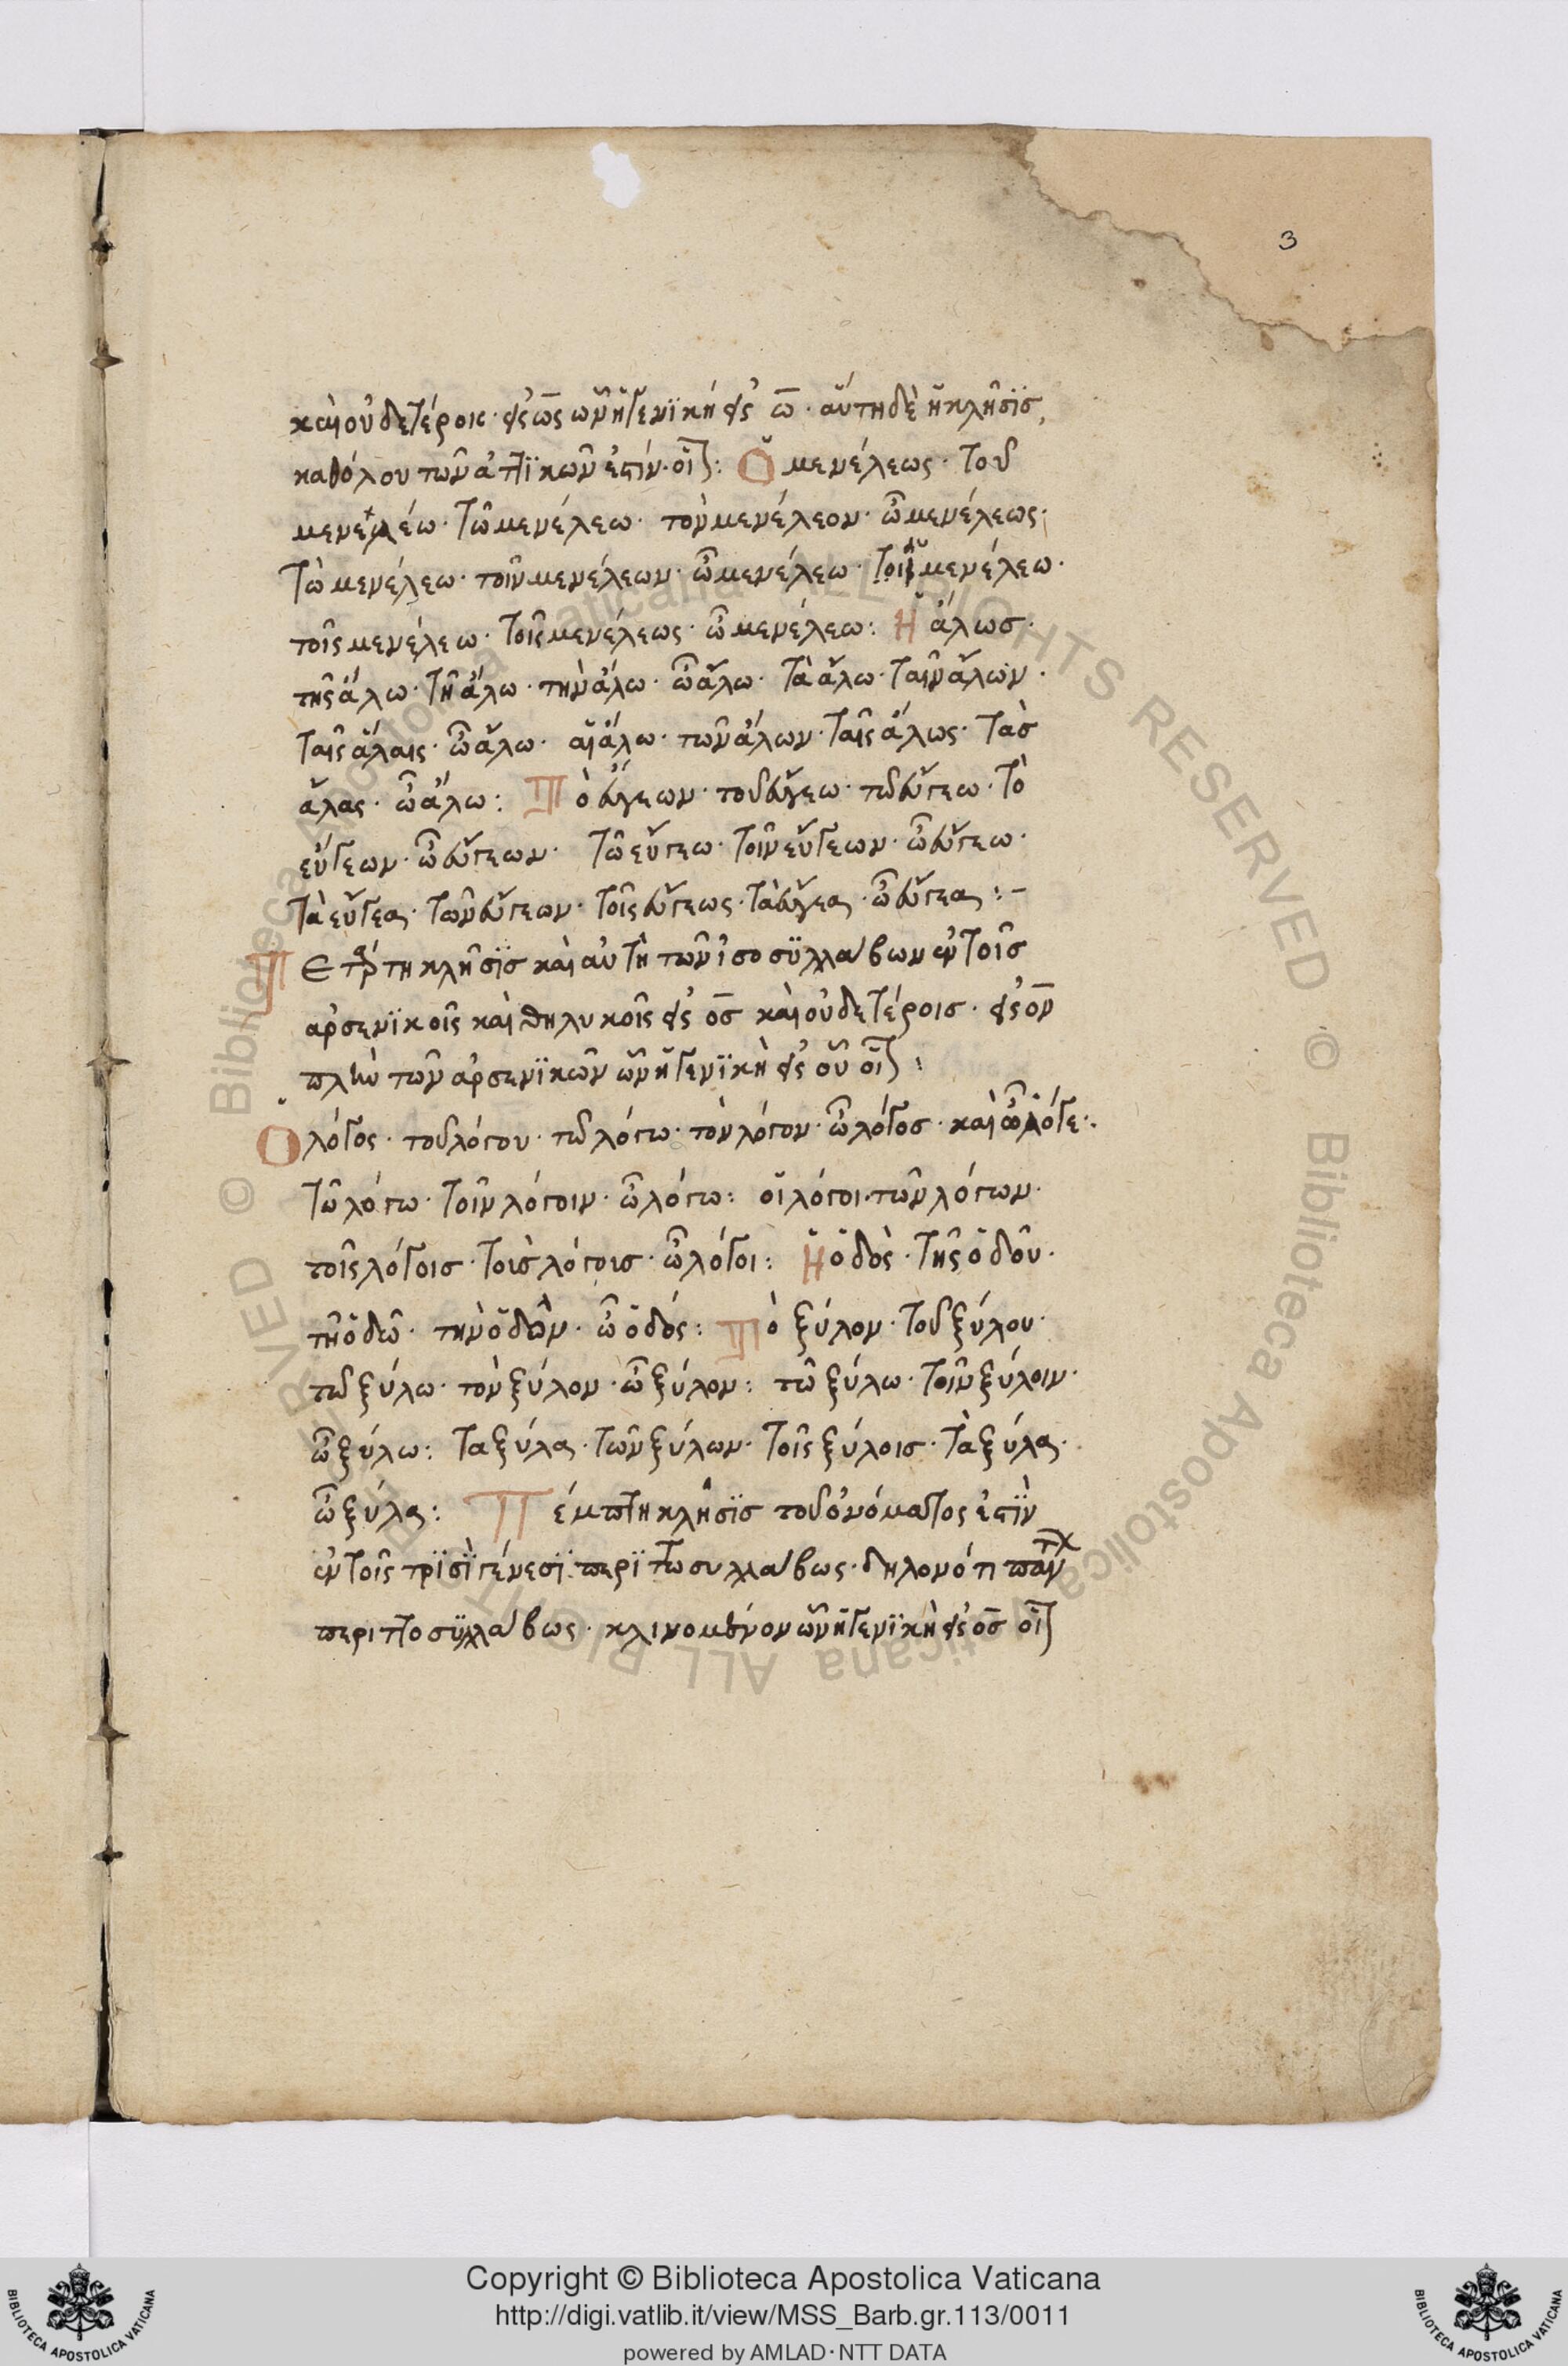 3
καὶ οὐδετέροις· εἰς ως ων ἡ γενϊκή εἰς ω· αὕτη δὲ ἡ κλῆσϊς,
καθόλου τῶν ἀττϊκῶν ἐστίν· οἷ: Ὁ μενέλεως· τοῦ
μενελέω· τῶ μενέλεω· τὸν μενέλεον· ὦ μενέλεως·
τὼ μενέλεω· τοῖν μενέλεων· ὦ μενέλεω· τοὶ μενέλεω·
τοῖς μενέλεω· τοῖς μενέλεως· ὦ μενέλεω: Ἡ ἅλωσ·
τῆς ἅλω· τῆ ἅλω· τὴν ἅλω· ὦ ἅλω· τὰ ἅλω· ταῖν ἅλων·
ταῖς ἅλαις· ὦ ἅλω· αἱ ἅλω· τῶν ἅλων· ταῖς ἅλως· τὰσ
ἅλας· ὦ ἅλω: Τὸ εὔγεων· τοῦ εὔγεω· τῶ εὔγεω· τὸ
εὔγεων· ὦ εὔγεων· τῶ εὔγεω· τοῖν εὔγεων· ὦ εὔγεω·
τὰ εὔγεα· τῶν εὔγεων· τοῖς εὔγεως· τὰ εὔγεα· ὦ εὔγεα:–
Τετάρτη κλῆσϊσ καὶ αὐτὴ τῶν ἰσοσϋλλάβων ἐν τοῖσ
αρσενϊκοῖς καὶ θηλυκοῖς εἰς οσ καὶ οὐδετέροισ· εἰς ον
πλὴν τῶν αρσενϊκῶν ὧν ἡ γενϊκὴ εἰς ου οἷ:
Ὁ λόγος· τοῦ λόγου· τῶ λόγω· τὸν λόγον· ὦ λόγοσ· καὶ ὦ λόγε·
τῶ λόγω· τοῖν λόγοιν· ὦ λόγω: οἱ λόγοι· τῶν λόγων·
τοῖς λόγοισ· τοὶσ λόγοισ· ὦ λόγοι: Ἡ ὁδὸς· τῆς ὁδοῦ·
τῆ ὁδῶ· τὴν ὁδὸν· ὦ ὁδός: Τὸ ξύλον· τοῦ ξύλου·
τῶ ξύλω· τὸν ξύλον· ὦ ξύλον: τῶ ξύλω· τοῖν ξύλοιν·
ὦ ξύλω: τα ξύλα· τῶν ξύλων· τοῖς ξύλοισ· τὰ ξύλα·
ὦ ξύλα: Πέμπτη κλῆσϊσ τοῦ ὀνόματος ἐστϊν
ἐν τοῖς τρϊσὶ γένεσϊ· περϊττωσυλλάβως· δηλονότι παν
περιττοσϋλλάβως· κλινομένον ὧν ἡ γενϊκὴ εἰς οσ οἷ
Copyright © Biblioteca Apostolica Vaticana
http://digi.vatlib.it/view/MSS_Barb.gr.113/0011
powered by AMLAD·NTT DATA
BIBLIOTECA APOSTOLICA VATICANA
BIBLIOTECA APOSTOLICA VATICANA